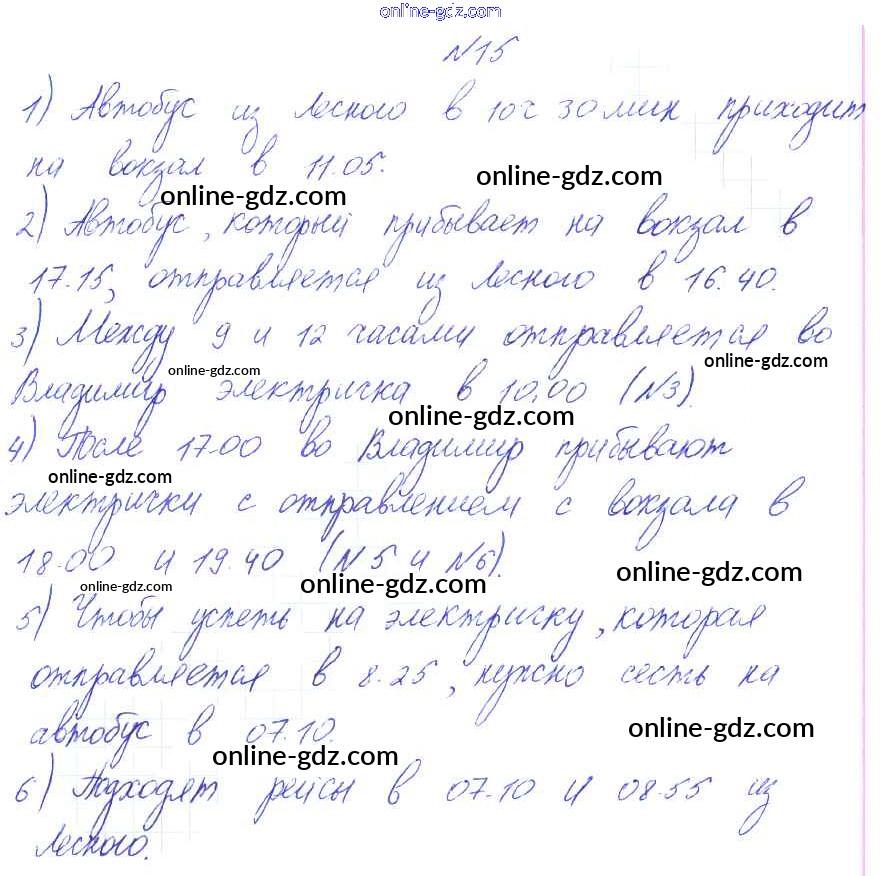 online-gdz.com
№15
1) Автобус из Лесного в 10ч 30мин приходит
на вокзал в 11.05.
online-gdz.com
online-gdz.com
2) Автобус, который прибывает на вокзал в
17.15, отправляется из Лесного в 16.40.
3) Между 9 и 12 часами отправляется во
online-gdz.com
online-gdz.com
Владимир электричка в 10.00 (№3).
online-gdz.com
4) После 17.00 во Владимир прибывают
online-gdz.com
электрички с отправлением с вокзала в
18.00 и 19.40 (№5 и №6).
online-gdz.com
online-gdz.com
online-gdz.com
5) Чтобы успеть на электричку, которая
отправляется в 8.25, нужно сесть на
автобус в 07.10.
online-gdz.com
online-gdz.com
6) Подходят рейсы в 07.10 и 08.55 из
Лесного.
online-gdz.com
online-gdz.com